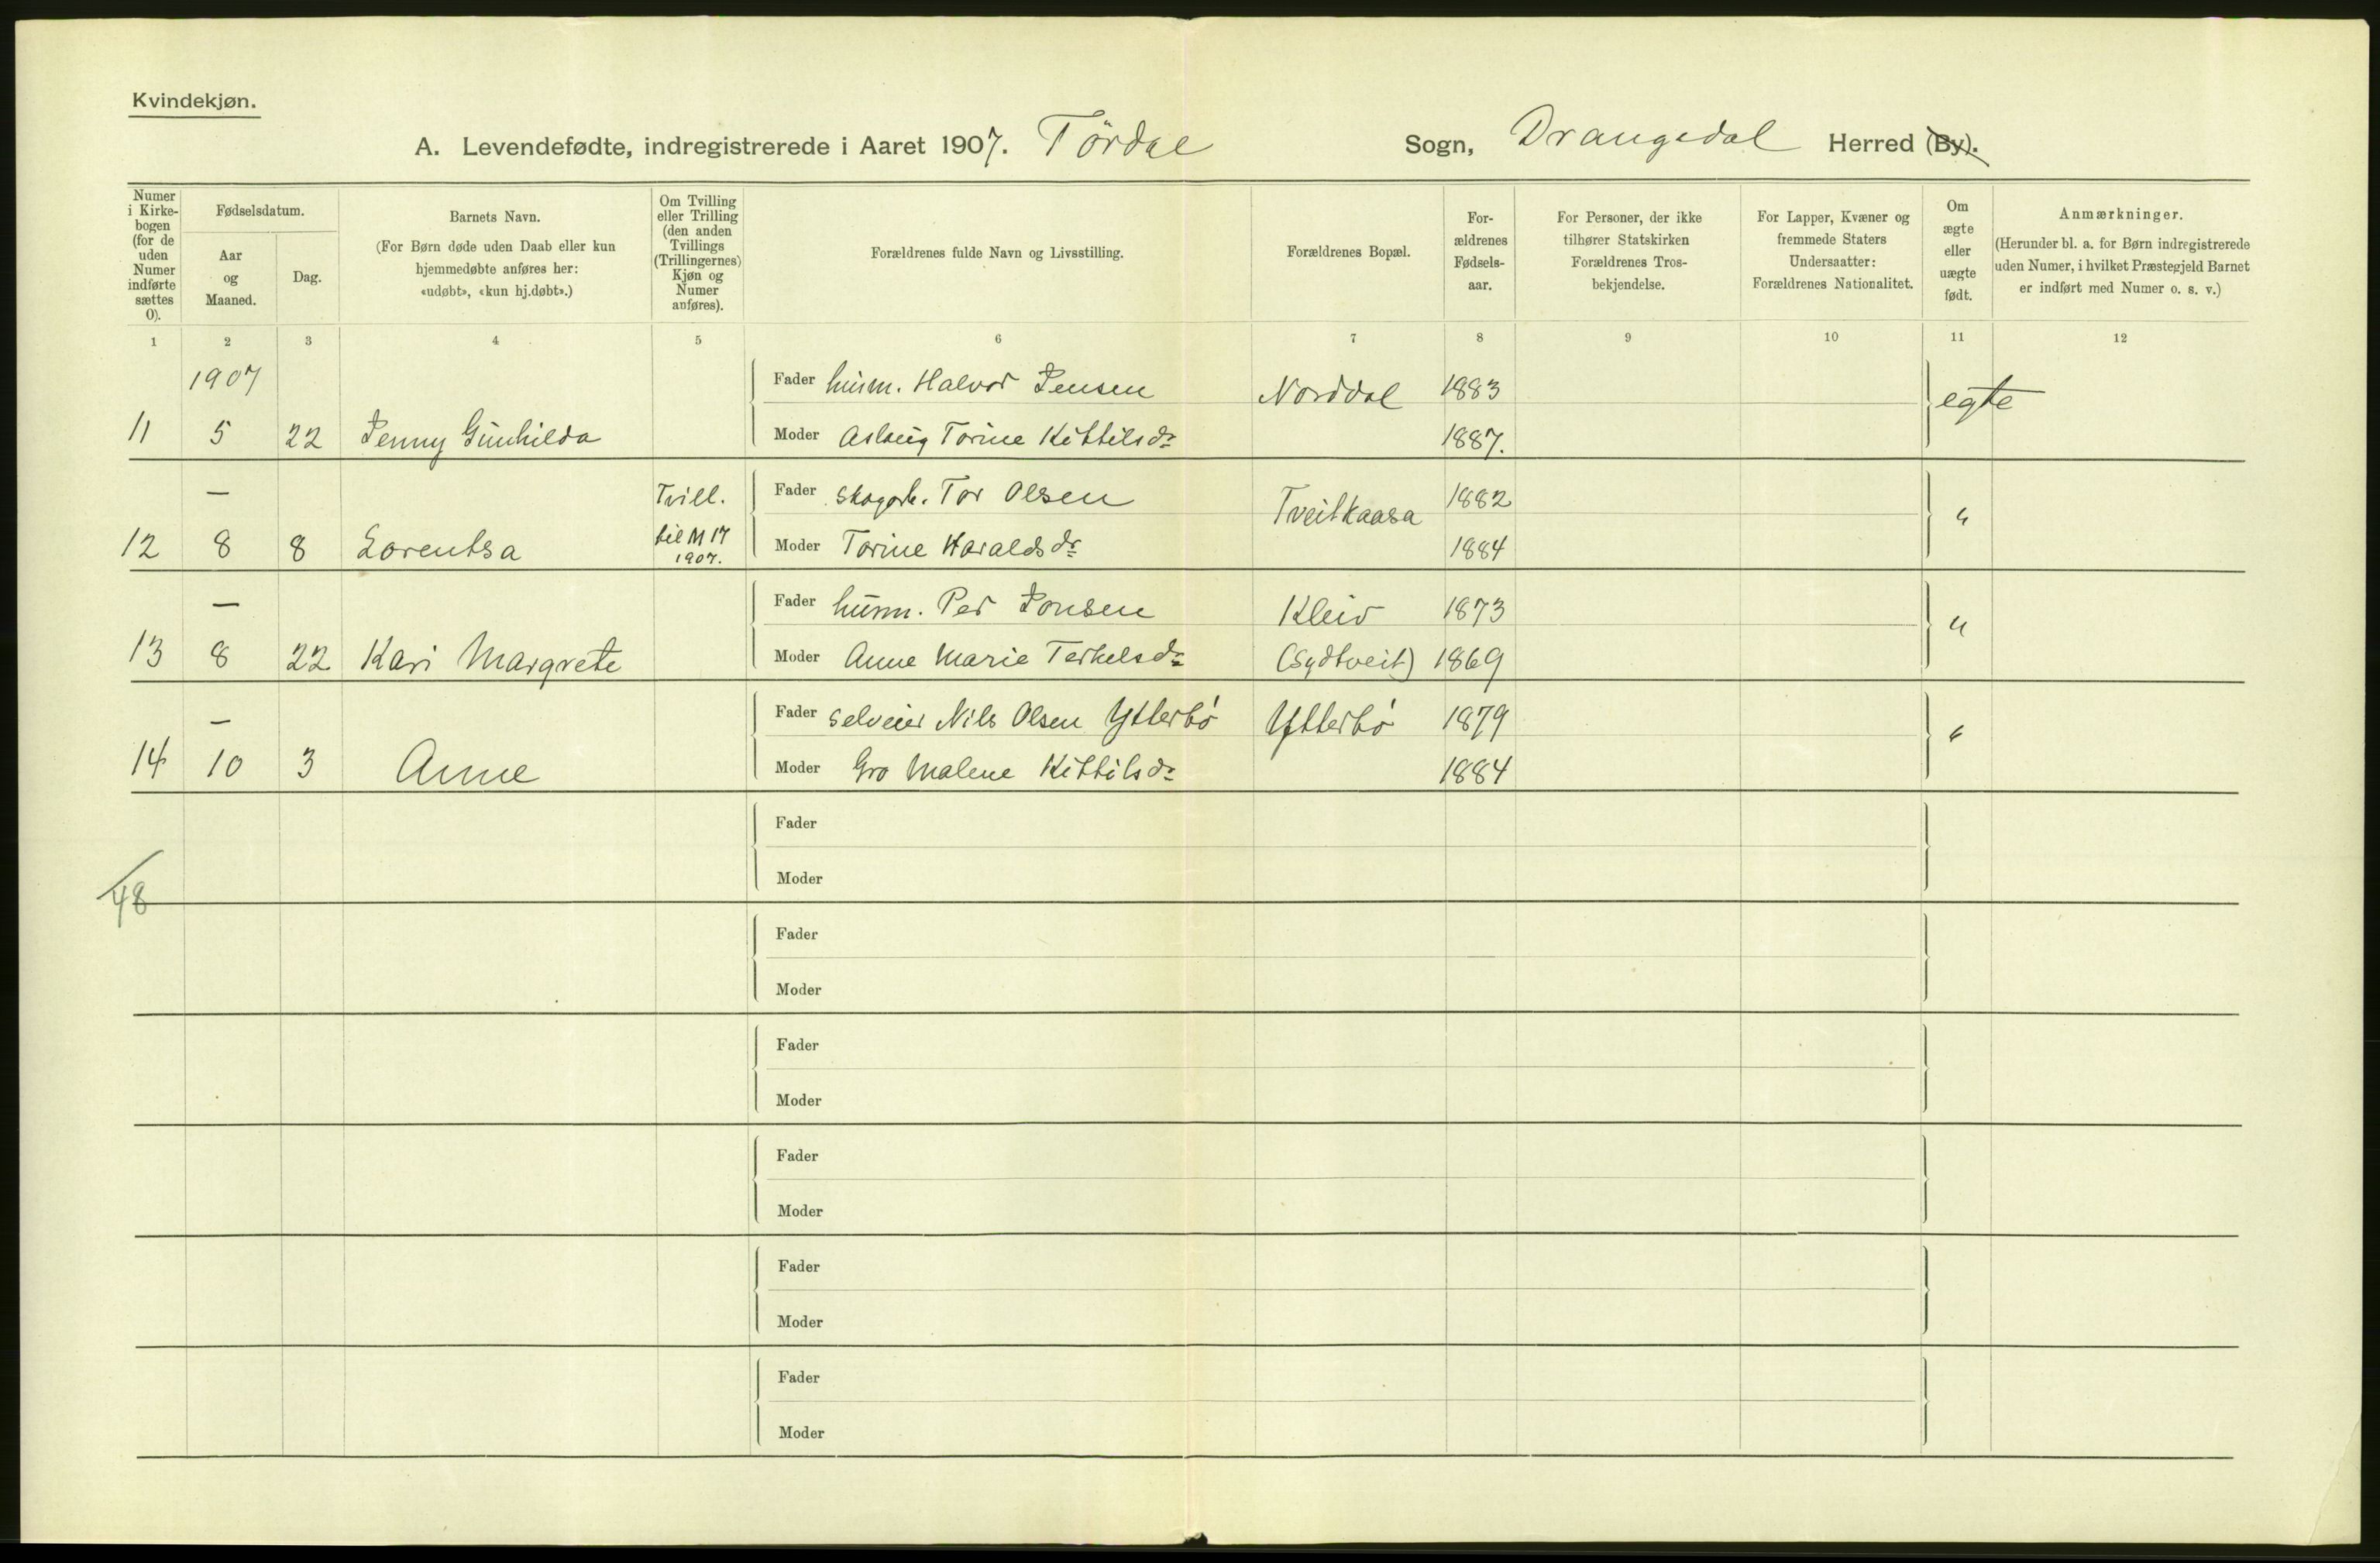 Kvindekjøn.
A. Levendefødte, indregistrerede i Aaret 1907. Tördal Sogn, Drangedal Herred (By).
Numer i Kirkebogen (for de uden Numer indførte sættes 0).
Fødselsdatum.
Aar og Maaned.
Dag.
Barnets Navn.
(For Børn døde uden Daab eller kun
hjemmedøbte anføres her:
«udøbt», «kun hj.døbt».)
Om Tvilling
eller Trilling
(den anden
Tvillings
(Trillingernes)
Kjøn og
Numer
anføres).
Forældrenes fulde Navn og Livsstilling.
Forældrenes Bopæl.
For-
ældrenes
Fødsels-
aar.
For Personer, der ikke
tilhører Statskirken
Forældrenes Tros-
bekjendelse.
For Lapper, Kvæner og
fremmede Staters
Undersaatter:
Forældrenes Nationalitet.
Om
ægte
eller
uægte
født.
Anmærkninger.
(Herunder bl. a. for Børn indregistrerede
uden Numer, i hvilket Præstegjeld Barnet
er indført med Numer o. s. v.)
1 2 3 4 5 6 7 8 9 10 11 12
1907 Fader husm. Halvor Jensen Norddal 1883 egte
11 5 22 Jenny Gunhilda Moder Aslaug Torine Kittilsdr 1887.
— Tvill. Fader skogarb. Tor Olsen Tveitkaasa 1882 "
12 8 8 Lorentsa til M 17 1907. Moder Torine Haraldsdr 1884
— Fader husm. Per Jonsen Kleiv 1873 "
13 8 22 Kari Margrete Moder Anne Marie Terkelsdr (Sydtveit) 1869
— Fader selveier Nils Olsen Ytterbö Ytterbö 1879 "
14 10 3 Anne Moder Gro Malene Kittilsdr 1884
Fader
Moder
48
Fader
Moder
Fader
Moder
Fader
Moder
Fader
Moder
Fader
Moder